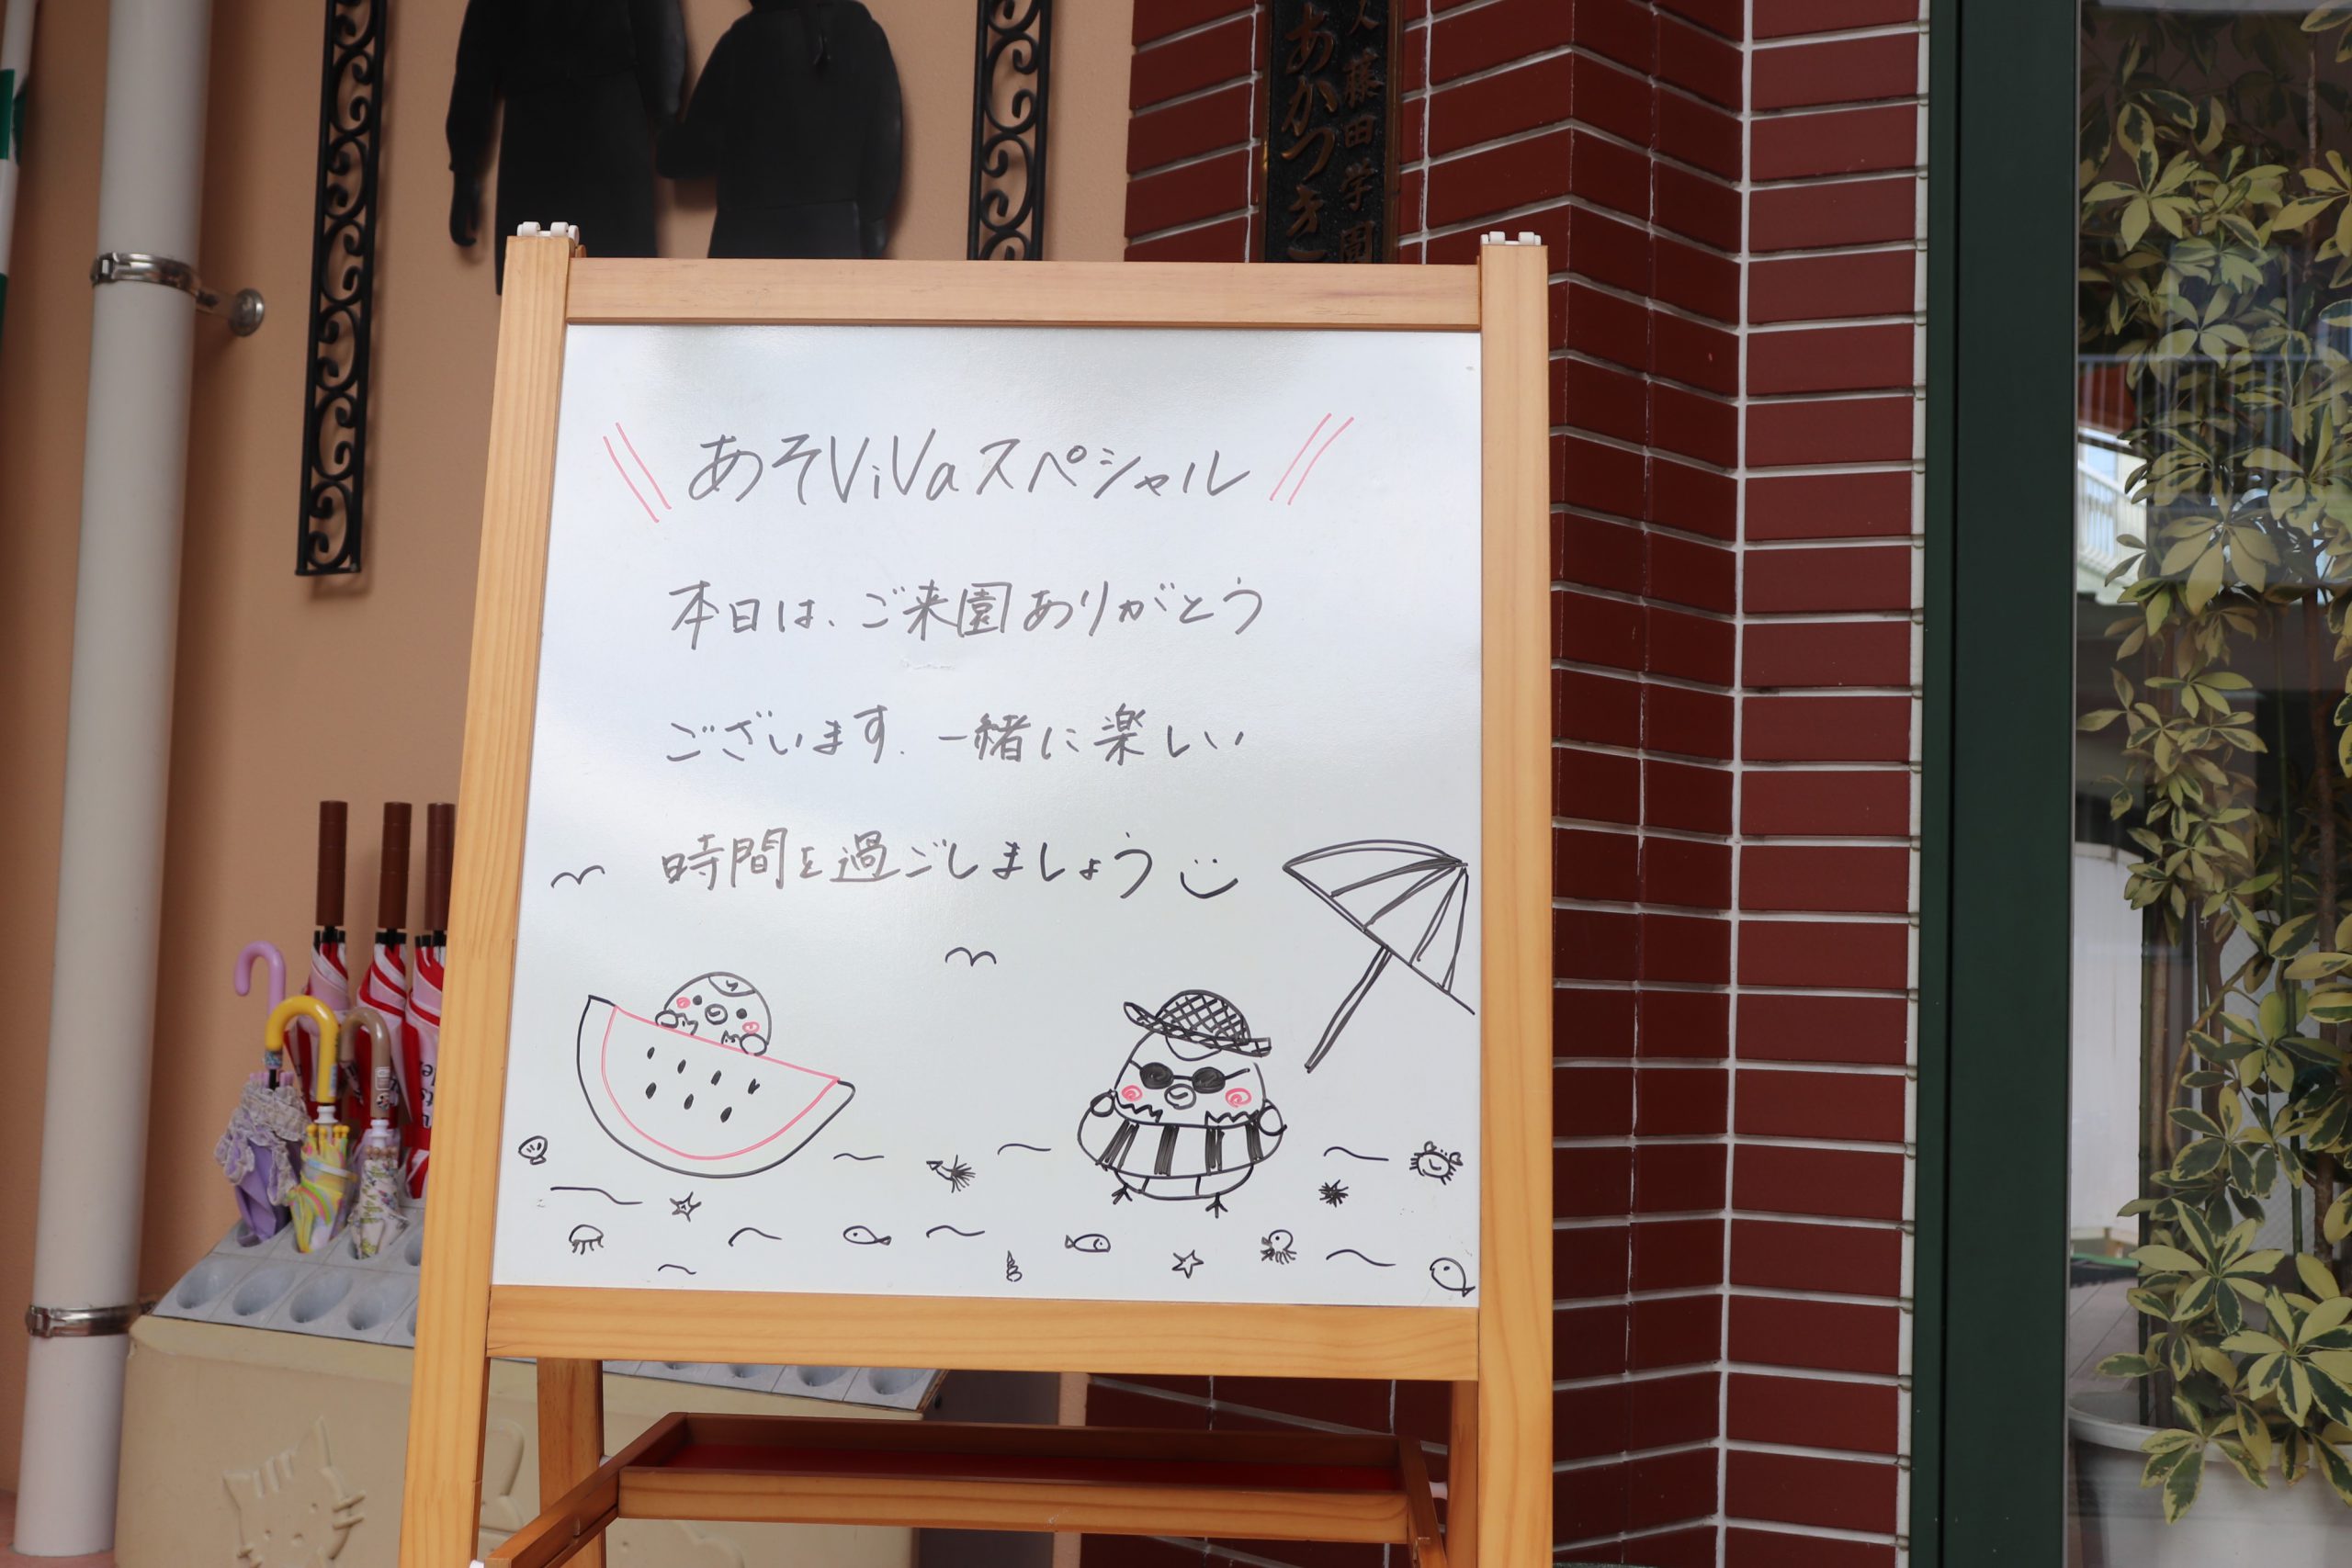 人藤田学園
あかつき
あそViVaスペシャル
本日は、ご来園ありがとう
ございます。一緒に楽しい
時間を過ごしましょう